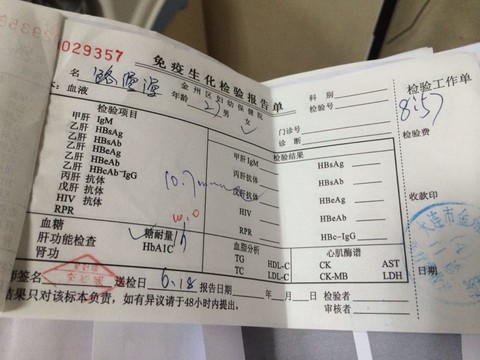 029357
免疫生化检验报告单
金州区妇幼保健院
名
年龄 男 女
科别
检验号
门诊号
诊断
检验工作单
8:57
检验费
收款印
日期
血液
检验项目
甲肝 IgM
乙肝 HBsAg
乙肝 HBsAb
乙肝 HBeAg
乙肝 HBeAb
乙肝 HBcAb-IgG
丙肝 抗体
戊肝 抗体
HIV
RPR
检验结果
甲肝IgM
丙肝抗体
戊肝抗体
HIV
RPR
HBsAg
HBsAb
HBeAg
HBeAb
HBc-IgG
10.7
10.0
血糖
糖耐量 1h
肝功能检查
HbA1C
肾功
血脂分析
TG HDL-C
TC LDL-C
心肌酶谱
CK AST
CK-MB LDH
师签名
送检日 6.18
报告日期 年 月 日
检验者
审核者
结果只对该标本负责，如有异议请于48小时内提出。
大连市金